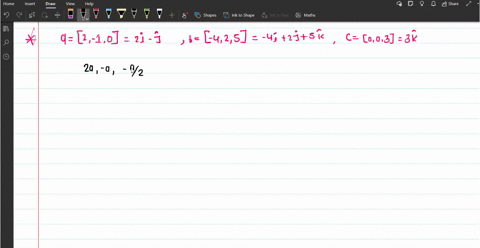 Home Insert Draw View Help
Share
Shapes Ink to Shape Ink to Text Maths
* a = [2,-1,0] = 2î - ĵ , b = [-4,2,5] = -4î + 2ĵ + 5k̂ , C = [0,0,3] = 3k̂
2a, -a, -a/2